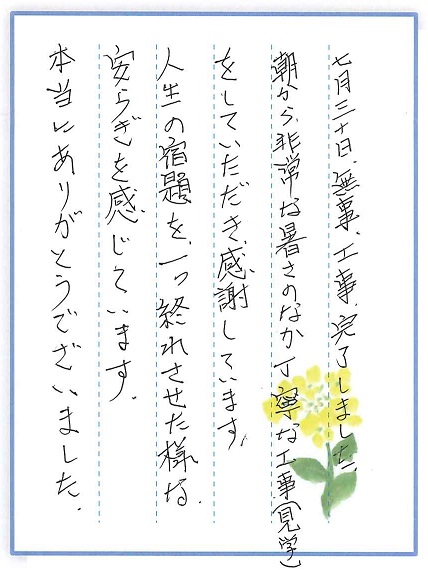 七月三十日、無事、工事、完了しました。
朝から、非常な暑さのなか丁寧な工事(見学)
をしていただき、感謝しています。
人生の宿題を、一つ終れさせた様な、
安らぎを感じています。
本当にありがとうございました。